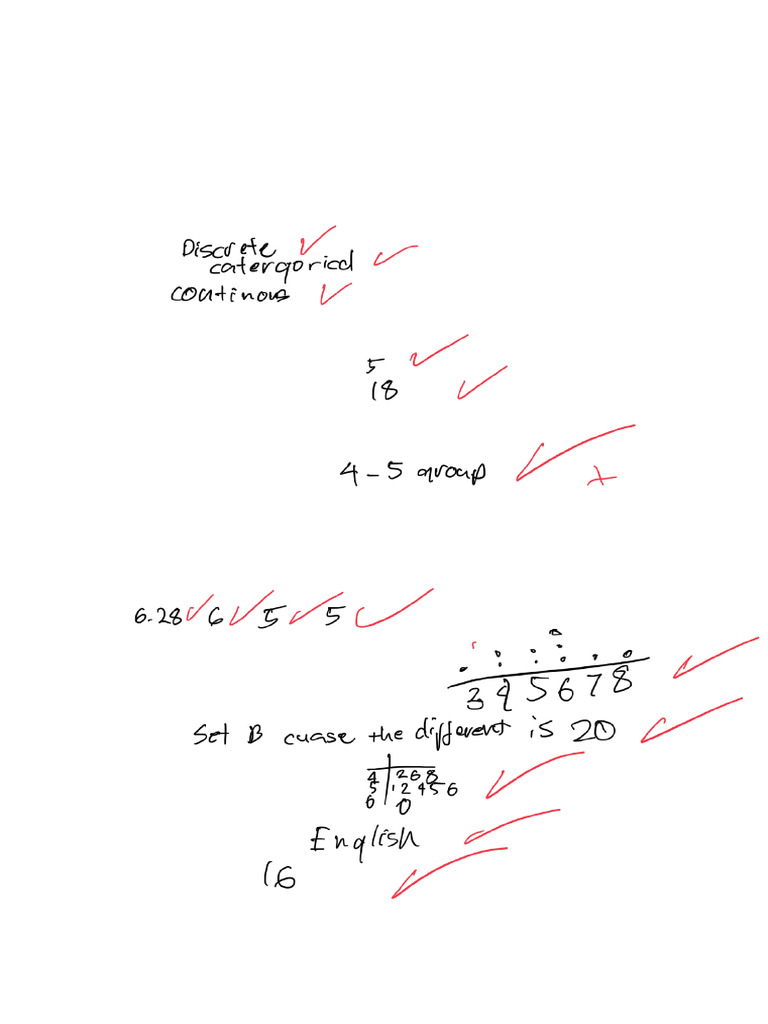 Discrete
catergorical
continous
5
18
4-5 group
6.28 6 5 5
3 4 5 6 7 8
Set B cuase the different is 20
4 | 2 6 8
5 | 1 2 4 5 6
6 | 0
English
16